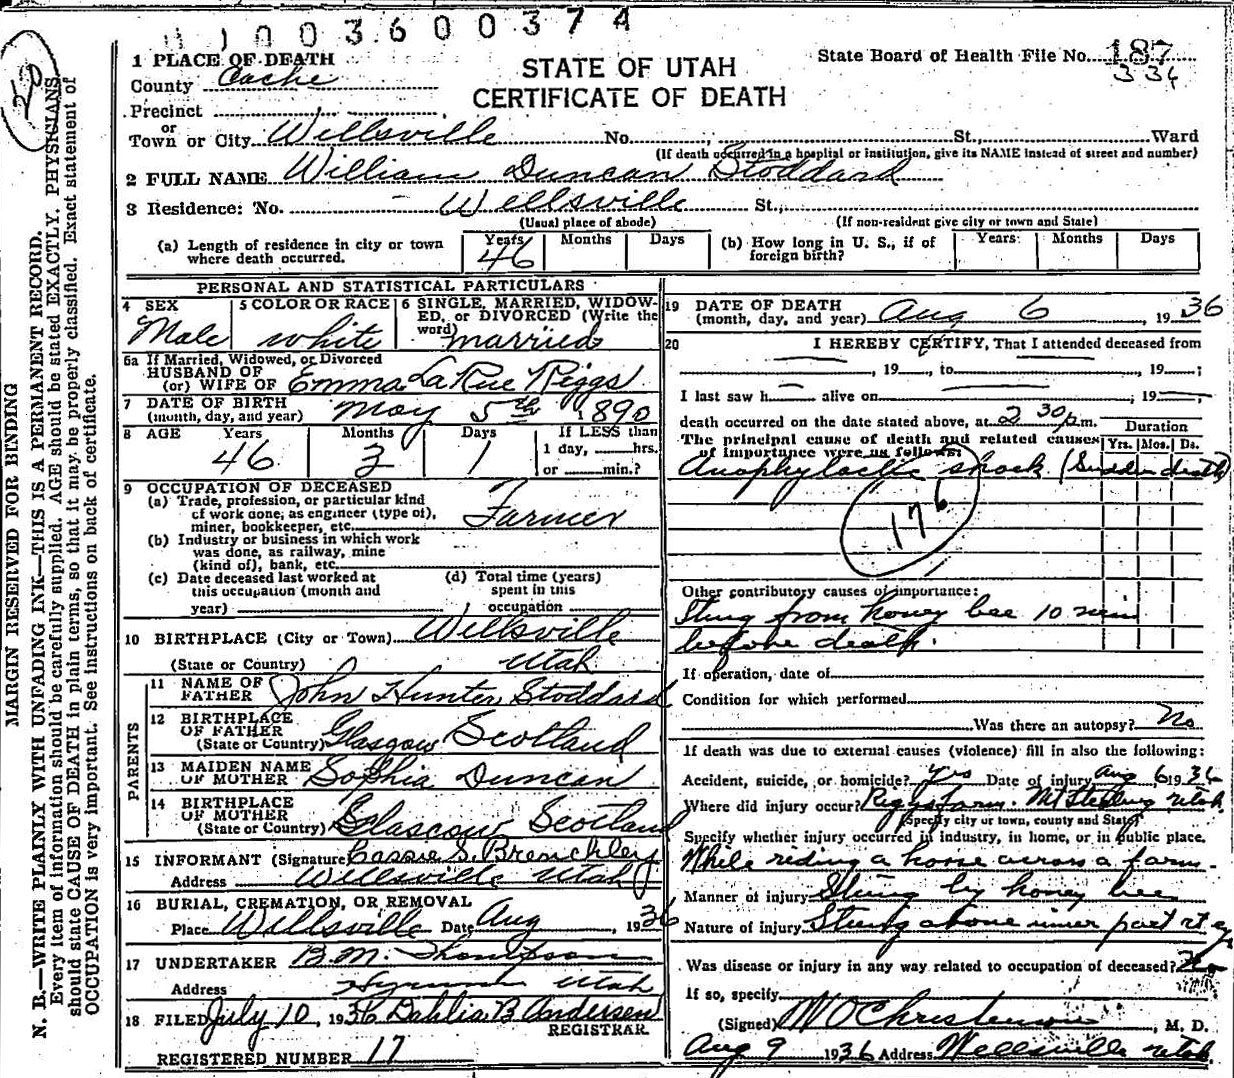 1003600374
State Board of Health File No. 187
334
STATE OF UTAH
CERTIFICATE OF DEATH
1 PLACE OF DEATH
County Cache
Precinct
or
Town or City Wellsville No. St., Ward
(If death occurred in a hospital or institution, give its NAME instead of street and number)
2 FULL NAME William Duncan Stoddard
3 Residence: No. Wellsville St.,
(Usual place of abode) (If non-resident give city or town and State)
(a) Length of residence in city or town where death occurred. Years 46 Months Days
(b) How long in U. S., if of foreign birth? Years Months Days
PERSONAL AND STATISTICAL PARTICULARS
4 SEX Male
5 COLOR OR RACE white
6 SINGLE, MARRIED, WIDOWED, or DIVORCED (Write the word) married
6a If Married, Widowed, or Divorced
HUSBAND OF
(or) WIFE OF Emma LaRue Riggs
7 DATE OF BIRTH
(month, day, and year) May 5th 1890
8 AGE Years 46 Months 3 Days 1
If LESS than
1 day, hrs.
or min.?
9 OCCUPATION OF DECEASED
(a) Trade, profession, or particular kind
of work done, as engineer (type of),
miner, bookkeeper, etc. Farmer
(b) Industry or business in which work
was done, as railway, mine
(kind of), bank, etc.
(c) Date deceased last worked at
this occupation (month and
year)
(d) Total time (years)
spent in this
occupation
10 BIRTHPLACE (City or Town) Wellsville
(State or Country) Utah
PARENTS
11 NAME OF FATHER John Hunter Stoddard
12 BIRTHPLACE OF FATHER
(State or Country) Glasgow Scotland
13 MAIDEN NAME OF MOTHER Sophia Duncan
14 BIRTHPLACE OF MOTHER
(State or Country) Glascow Scotland
15 INFORMANT (Signature) Cassie S. Brenchley
Address Wellsville Utah
16 BURIAL, CREMATION, OR REMOVAL
Place Wellsville Date Aug , 1936
17 UNDERTAKER B.M. Thompson
Address Hyrum Utah
18 FILED July 10, 1936 Dahlia B Andersen
REGISTRAR
REGISTERED NUMBER 17
19 DATE OF DEATH
(month, day, and year) Aug 6, 1936
20 I HEREBY CERTIFY, That I attended deceased from
, 19 , to , 19 ;
I last saw h alive on , 19 ,
death occurred on the date stated above, at 2 30 p.m.
The principal cause of death and related causes
of importance were as follows:
Duration
Yrs. Mos. Ds.
Anophylactic shock (Sudden death)
176
Other contributory causes of importance:
Sting from honey bee 10 min
before death.
If operation, date of
Condition for which performed
Was there an autopsy? No
If death was due to external causes (violence) fill in also the following:
Accident, suicide, or homicide? Yes Date of injury Aug 6 1936
Where did injury occur? Riggs farm. Mt Sterling Utah
(Specify city or town, county and State)
Specify whether injury occurred in industry, in home, or in public place.
While riding a horse across a farm.
Manner of injury Stung by honey bee
Nature of injury Stung above inner part rt eye
Was disease or injury in any way related to occupation of deceased? No
If so, specify
(Signed) W O Christenson, M. D.
Aug 9 1936 Address Wellsville Utah
MARGIN RESERVED FOR BINDING
N. B.—WRITE PLAINLY WITH UNFADING INK—THIS IS A PERMANENT RECORD.
Every item of information should be carefully supplied. AGE should be stated EXACTLY. PHYSICIANS
should state CAUSE OF DEATH in plain terms, so that it may be properly classified. Exact statement of
OCCUPATION is very important. See instructions on back of certificate.